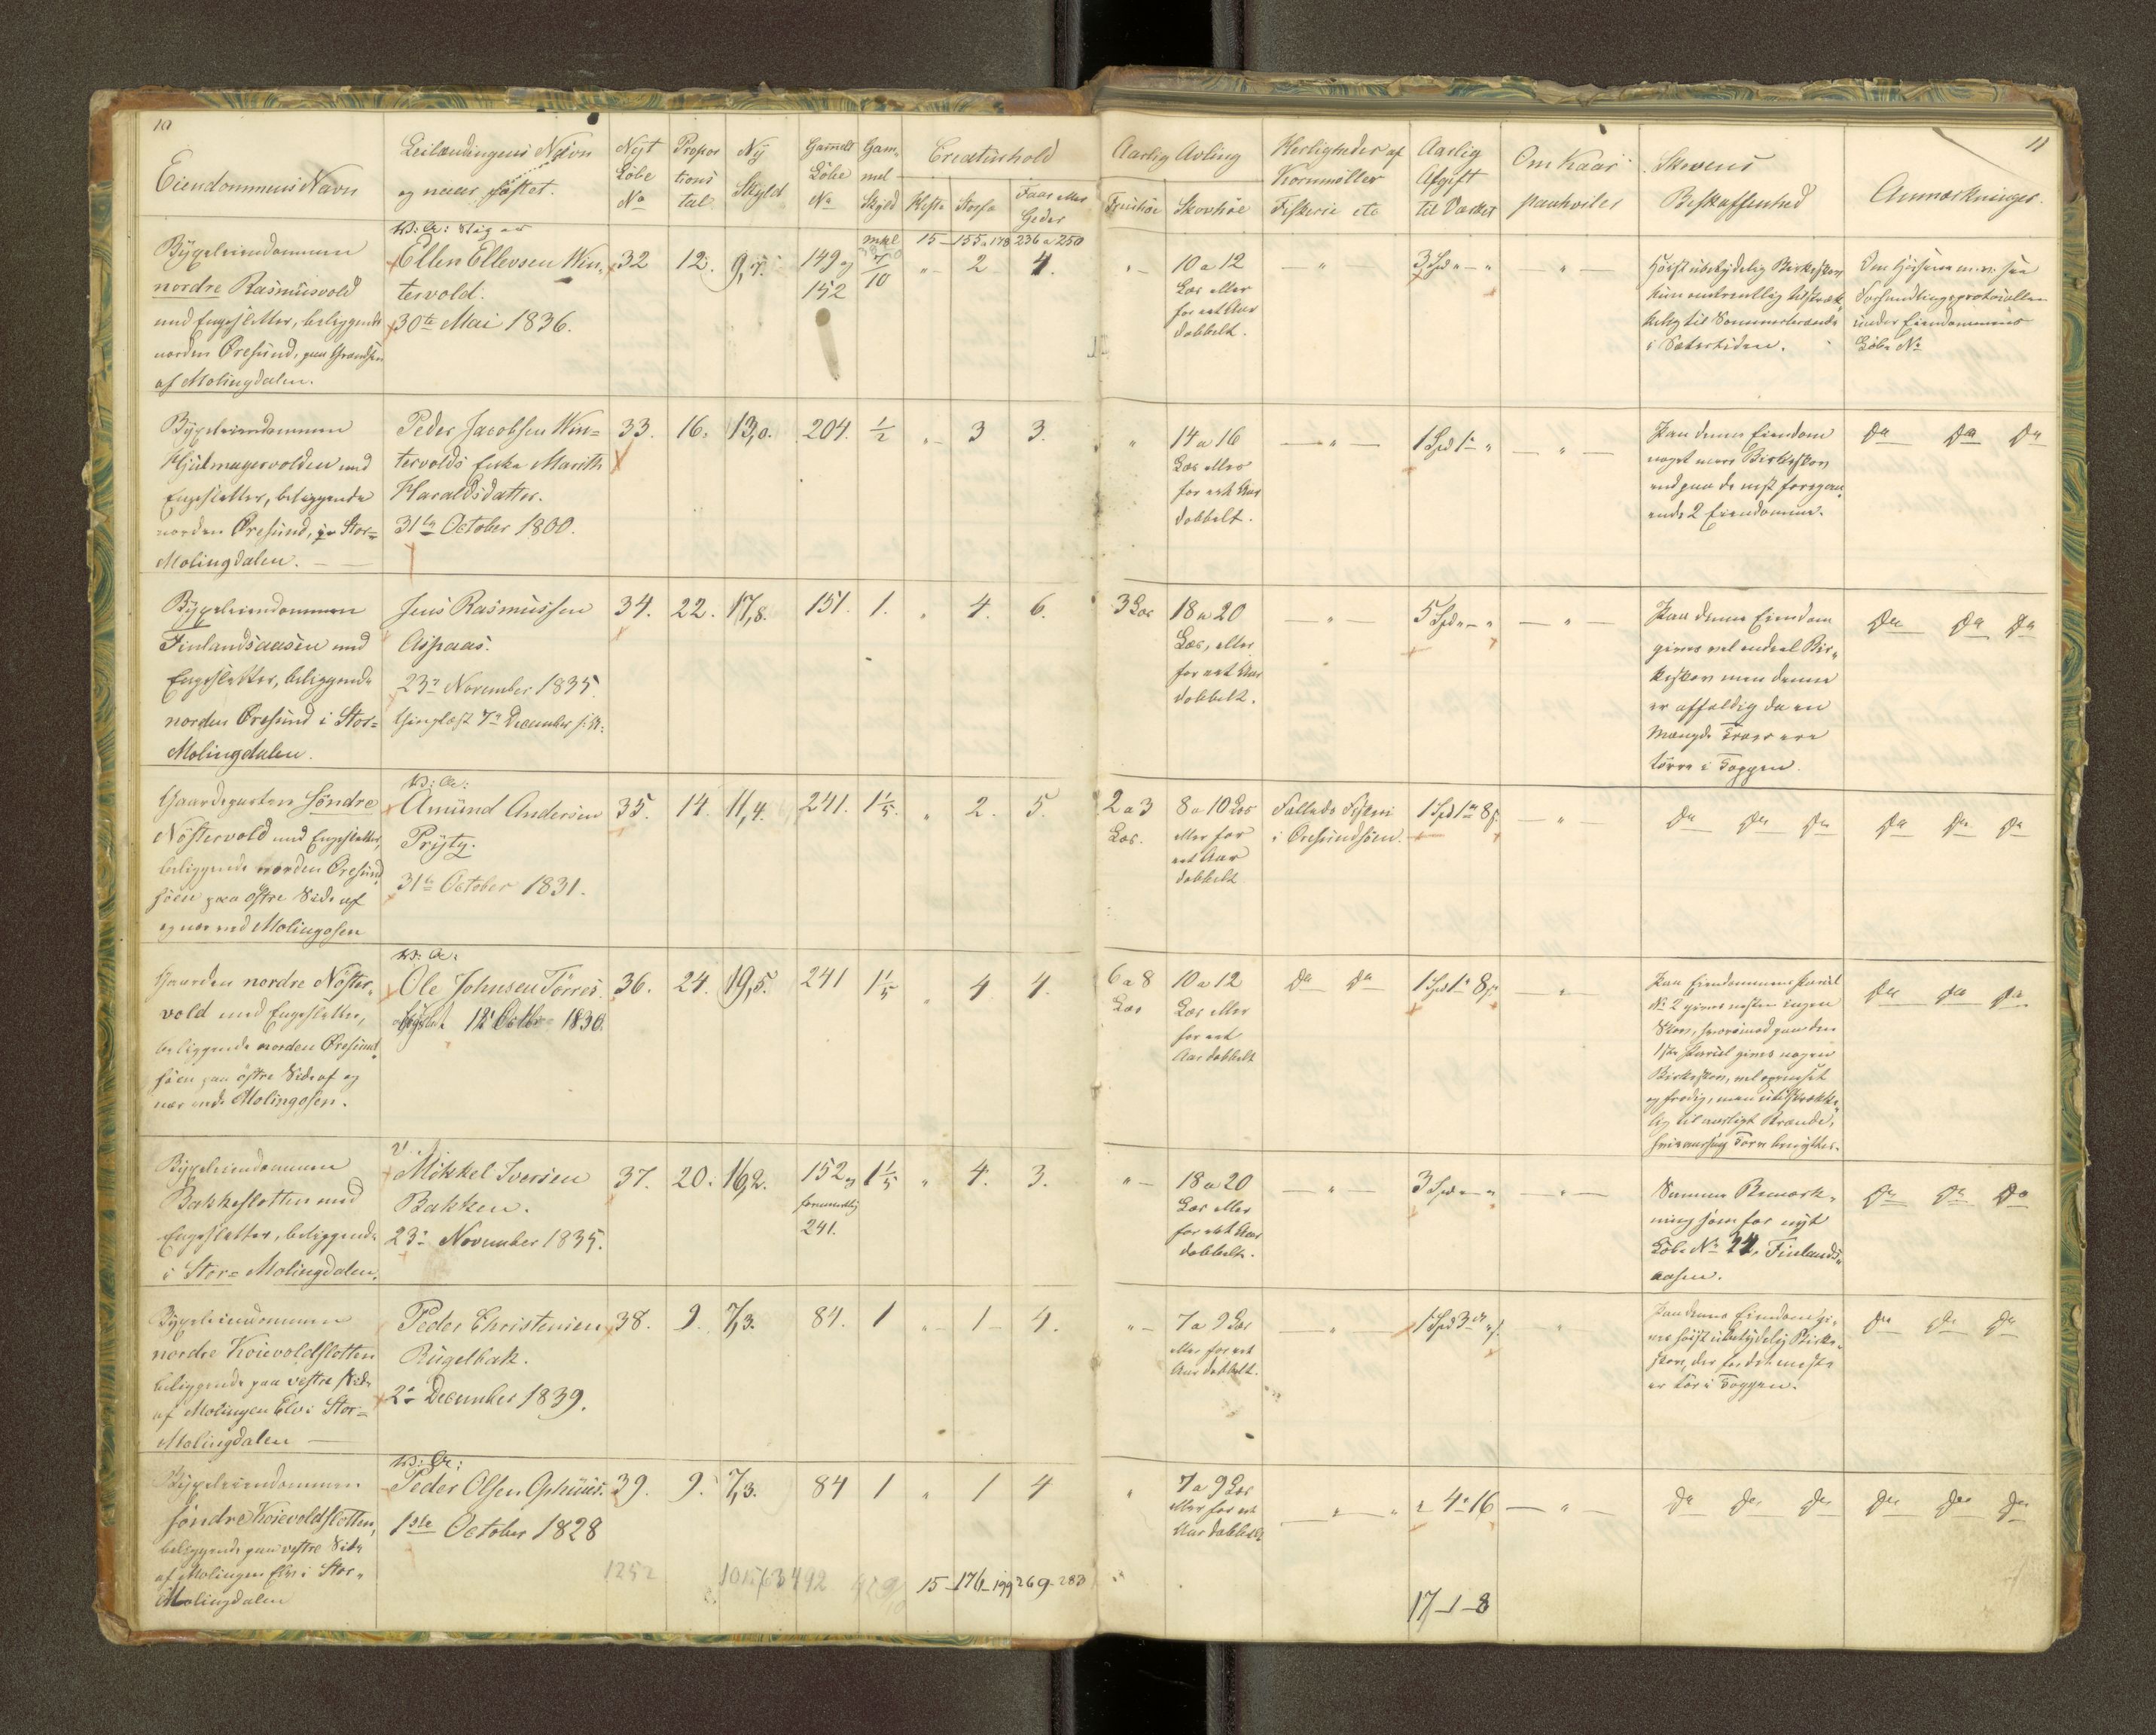 10
Eiendommens Navn
Leilændingens Navn
og naar fæstet.
Nyt
Löbe
No
Propor
tions
tal
Ny
Skyld
Gamelt
Löbe
No
Gam-
mel
Skyld
Creaturhold
Heste
Storfæ
Faar eller
Geder
Aarlig Avling
Skovhöe
Herligheder af
Kornmöller
Fiskerie etc
Aarlig
Afgift
til Værket
Om Kaar
paahviler
Skovens
Beskaffenhed
Anmærkninger.
11
15 - 155 a 178 236 a 250
Bygseleiendommen
nordre Rasmusvold
med Engesletter, beliggende
norden Öresund, paa Grændsen
af Molingdalen.
Ellen Ellevsen Win-
tervold.
30te Mai 1836.
32
12.
9,7.
149 og
152
7/10
"
2
4.
"
10 a 12
Læs eller
for eet Aar
dobbelt.
— " —
3 Spd " - "
— " —
Höist ubetydelig Birkeskov
kun omtrentlig tilstræk-
kelig til Sommerbrænde
i Sætertiden.
Forhandlingsprotocollen
under Eiendommens
Löbe No
Bygseleiendommen
Hjulmagervolden med
Engesletter, beliggende
norden Öresund, i Stor=
Molingdalen.
Peder Jacobsen Win=
tervolds Enke Marith
Haraldsdatter.
31te October 1800.
33.
16.
13,0.
204.
1/2
"
3
3.
"
14 a 16
Læs eller
for eet Aar
dobbelt.
— " —
1 Spd 1 - "
— " —
Paa denne Eiendom
noget mere Birkeskov
end paa de næst foregaa-
ende 2 Eiendomme.
Do Do Do
Bygseleiendommen
Finlandsaasen med
Engesletter, beliggende
norden Öresund i Stor=
Molingdalen.
Jens Rasmussen
Aspaas.
23de November 1835.
thinglæst 7de December s. A.
34.
22.
17,8.
151.
1.
"
4.
6.
3 Læs
18 a 20
Læs, eller
for eet Aar
dobbelt.
— " —
5 Spd " - "
— " —
Paa denne Eiendom
gives vel endeel Bir-
keskov men denne
er affældig da en
Mængde Træer ere
törre i Toppen.
Do Do Do
Gaardeparten söndre
Nöstervold med Engesletter,
beliggende norden Öresund
söen paa östre Side af
og nær ved Molingosen
Amund Andersen
Prytz.
31te October 1831.
35.
14.
11,4.
241.
1 1/5.
"
2.
5.
2 a 3
Læs.
8 a 10 Læs
eller for
eet Aar
dobbelt
Fælleds Fiskeri
i Öresundsöen.
1 Spd 1 - 8 s.
— " —
Do Do Do
Do Do Do
Gaarden nordre Nöster-
vold med Engesletter,
beliggende norden Öresund-
söen paa östre Side af og
nær ved Molingosen.
Ole Johnsen Törres.
12 Octbr 1830.
36.
24.
19,5.
241
1 1/5
"
4
4.
6 a 8
Læs
10 a 12
Læs eller
for eet
Aar dobbelt
Do Do
1 Spd 1 - 8 s.
— " —
Paa Eiendommens Parcel
No 2 gives næsten ingen
Skov, hvorimod paa den
1ste Parcel gives nogen
Birkeskov, vel opvoxet
og frodig, men utilstrække-
lig til aarligt Brænde,
Do Do Do
Bygseleiendommen
Bakkesletten med
Engesletter, beliggende
i Stor=Molingdalen.
Mikkel Iversen
Bakken.
23de November 1835.
37.
20.
16,2.
152 og
formentlig
241.
1 1/5
"
4.
3.
"
18 a 20
Læs eller
for eet Aar
dobbelt.
— " —
3 Spd " - "
— " —
Samme Bemærk-
ning som for nyt
Löbe No 34, Finlands-
aasen.
Do Do Do
Bygseleiendommen
nordre Koievoldsletten
beliggende paa vestre Side
af Molingen Elv i Stor=
Molingdalen
Peder Christensen
Rugelbak.
2de December 1839.
38.
9.
7,3.
84.
1
"
1
4.
"
7 a 9 Læs
eller for eet
Aar dobbelt.
— " —
1 Spd 3 " s.
"
Paa denne Eiendom gi-
ves höist ubetydelig Birke-
skov, der for det meste
er tör i Toppen.
Do Do Do
Bygseleiendommen
söndre Koievoldsletten,
beliggende paa vestre Side
af Molingen Elv i Stor-
Molingdalen
Peder Olsen Ophuus.
1ste October 1828
39.
9.
7,3.
84
1
"
1
4
"
7 a 9 Læs
eller for eet
Aar dobbelt
— " —
" 4 - 16
— " —
Do Do Do
Do Do Do
1252
15 - 176 - 199 269 - 283
17 - 1 - 8